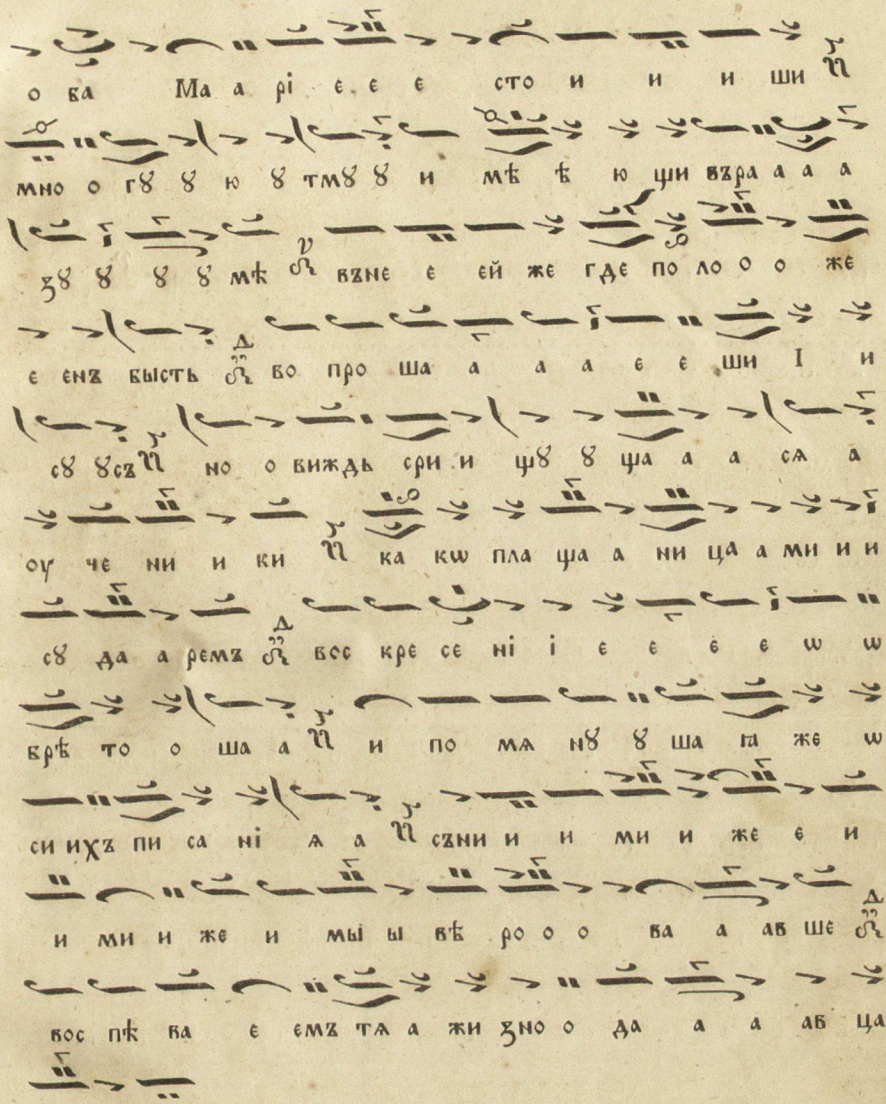 о ва Ма а рі е е е сто и и и ши
мно о гꙋ ꙋ ю ꙋ тмꙋ ꙋ и мѣ ѣ ю щи въра а а а
зꙋ ꙋ ꙋ ꙋ мѣ въне е ей же где по ло о о же
е енъ бысть во про ша а а а е е ши І и
сꙋ ꙋсъ но о виждь сри и щꙋ ꙋ ща а а сѧ а
оу че ни и ки ка кѡ пла ща а ни ца а ми и и
сꙋ да а ремъ вос кре се ні і е е е е ѡ ѡ
брѣ то о ша а и по мѧ нꙋ ꙋ ша ꙗ же ѡ
си ихъ пи са ні ѧ а съни и и ми и же е и
и ми и же и мы ы вѣ ро о о ва а ав ше
вос пѣ ва е емъ тѧ а жи зно о да а а ав ца